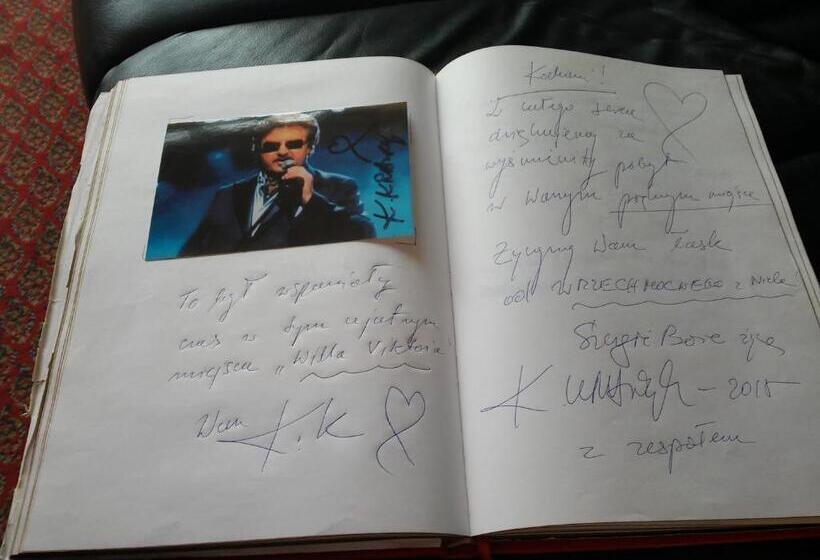 K. Krawczyk
To był wspaniały
czas w tym uroczym
miejscu „Willa Viktoria”
Wam K.K
Kochani!
Z całego serca
dziękujemy za
wyśmienity pobyt
w Waszym pięknym miejscu
Życzymy Wam Łask
od WSZECHMOCNEGO z Nieba
Szczęść Boże życzą
K Krawczyk – 2015
z zespołem